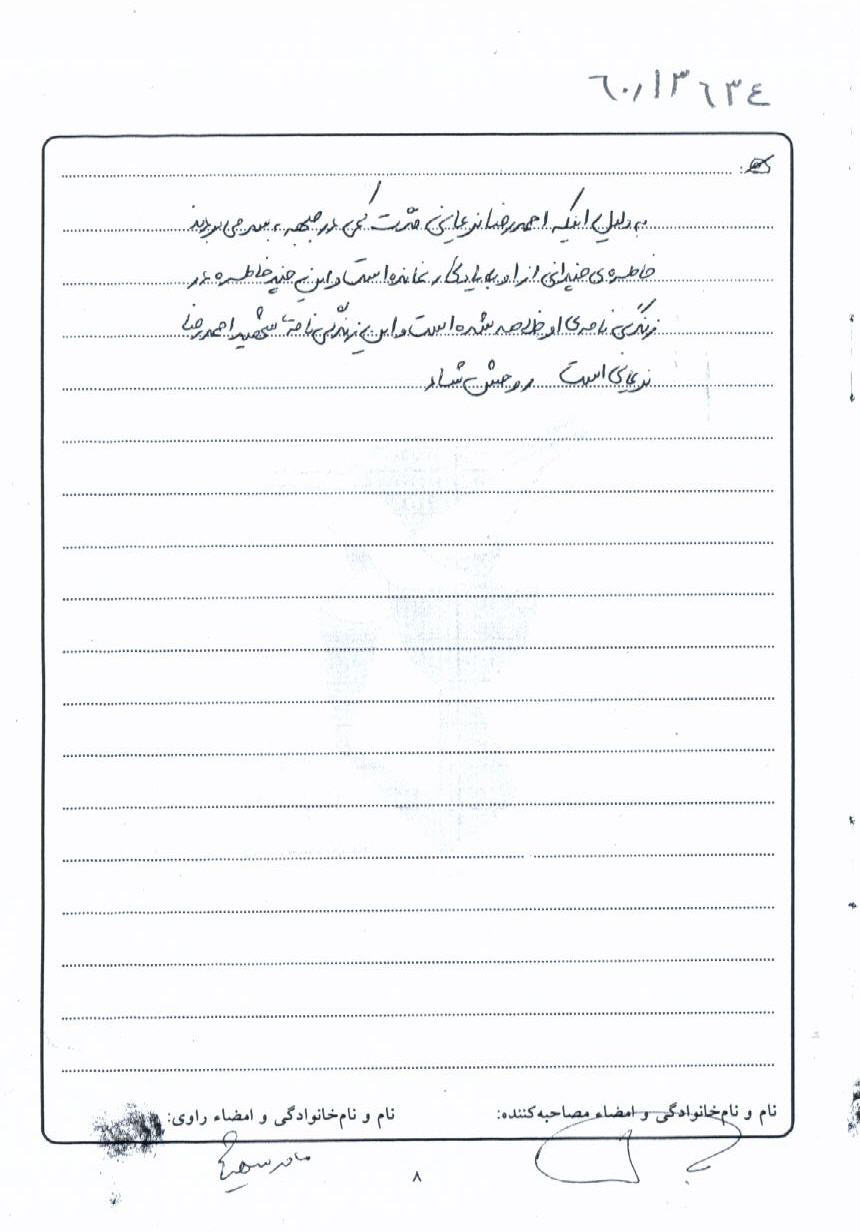 ۶۰۱۳۶۳۴
به دلیل اینکه احمدرضا نریمانی مدت کمی در جبهه بسر می بردند
خاطره ی چندانی از او به یادگار نمانده است و این چند خاطره در
زندگی نامه ی او خلاصه شده است و این زندگی نامه شهید احمدرضا
نریمانی است روحش شاد
نام و نام‌خانوادگی و امضاء مصاحبه‌کننده:
نام و نام‌خانوادگی و امضاء راوی:
مادر شهید
۸